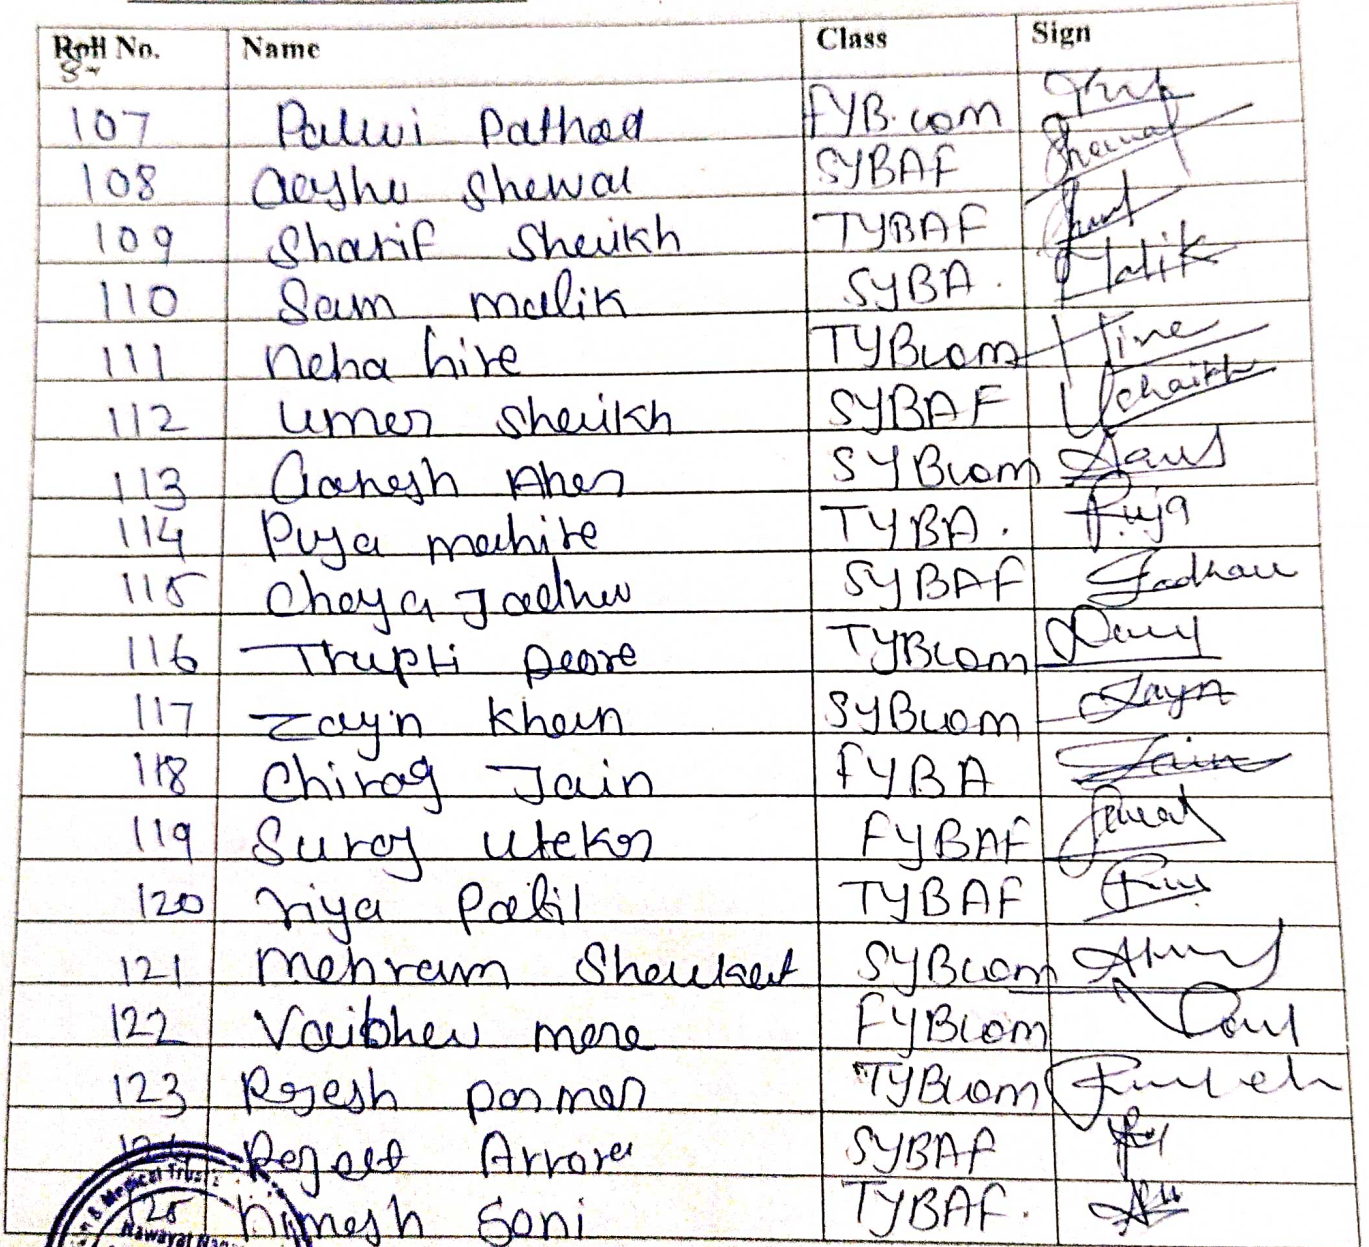 Roll No. Name Class Sign
Sr
107 Palwi Pathad FYB.com
108 Aayshu Shewal SYBAF Shewal
109 Sharif Sheikh TYBAF
110 Sam malik SYBA. Malik
111 neha hire TYBcom Hire
112 umer sheikh SYBAF Uchaikh
113 Ganesh Aher SYBcom
114 Puja mahire TYBA. Puja
115 Chaya Jadhav SYBAF Jadhav
116 Trupti Deore TYBcom
117 Zayn khan SYBcom Zayn
118 Chirag Jain FYBA Jain
119 Suraj Utekar FYBAF
120 riya Patil TYBAF
121 mehram Shaukat SYBcom
122 Vaibhav more FYBcom
123 Rajesh parmar TYBcom
124 Rajeet Arrora SYBAF
125 himesh Soni TYBAF.
Medical Trust's